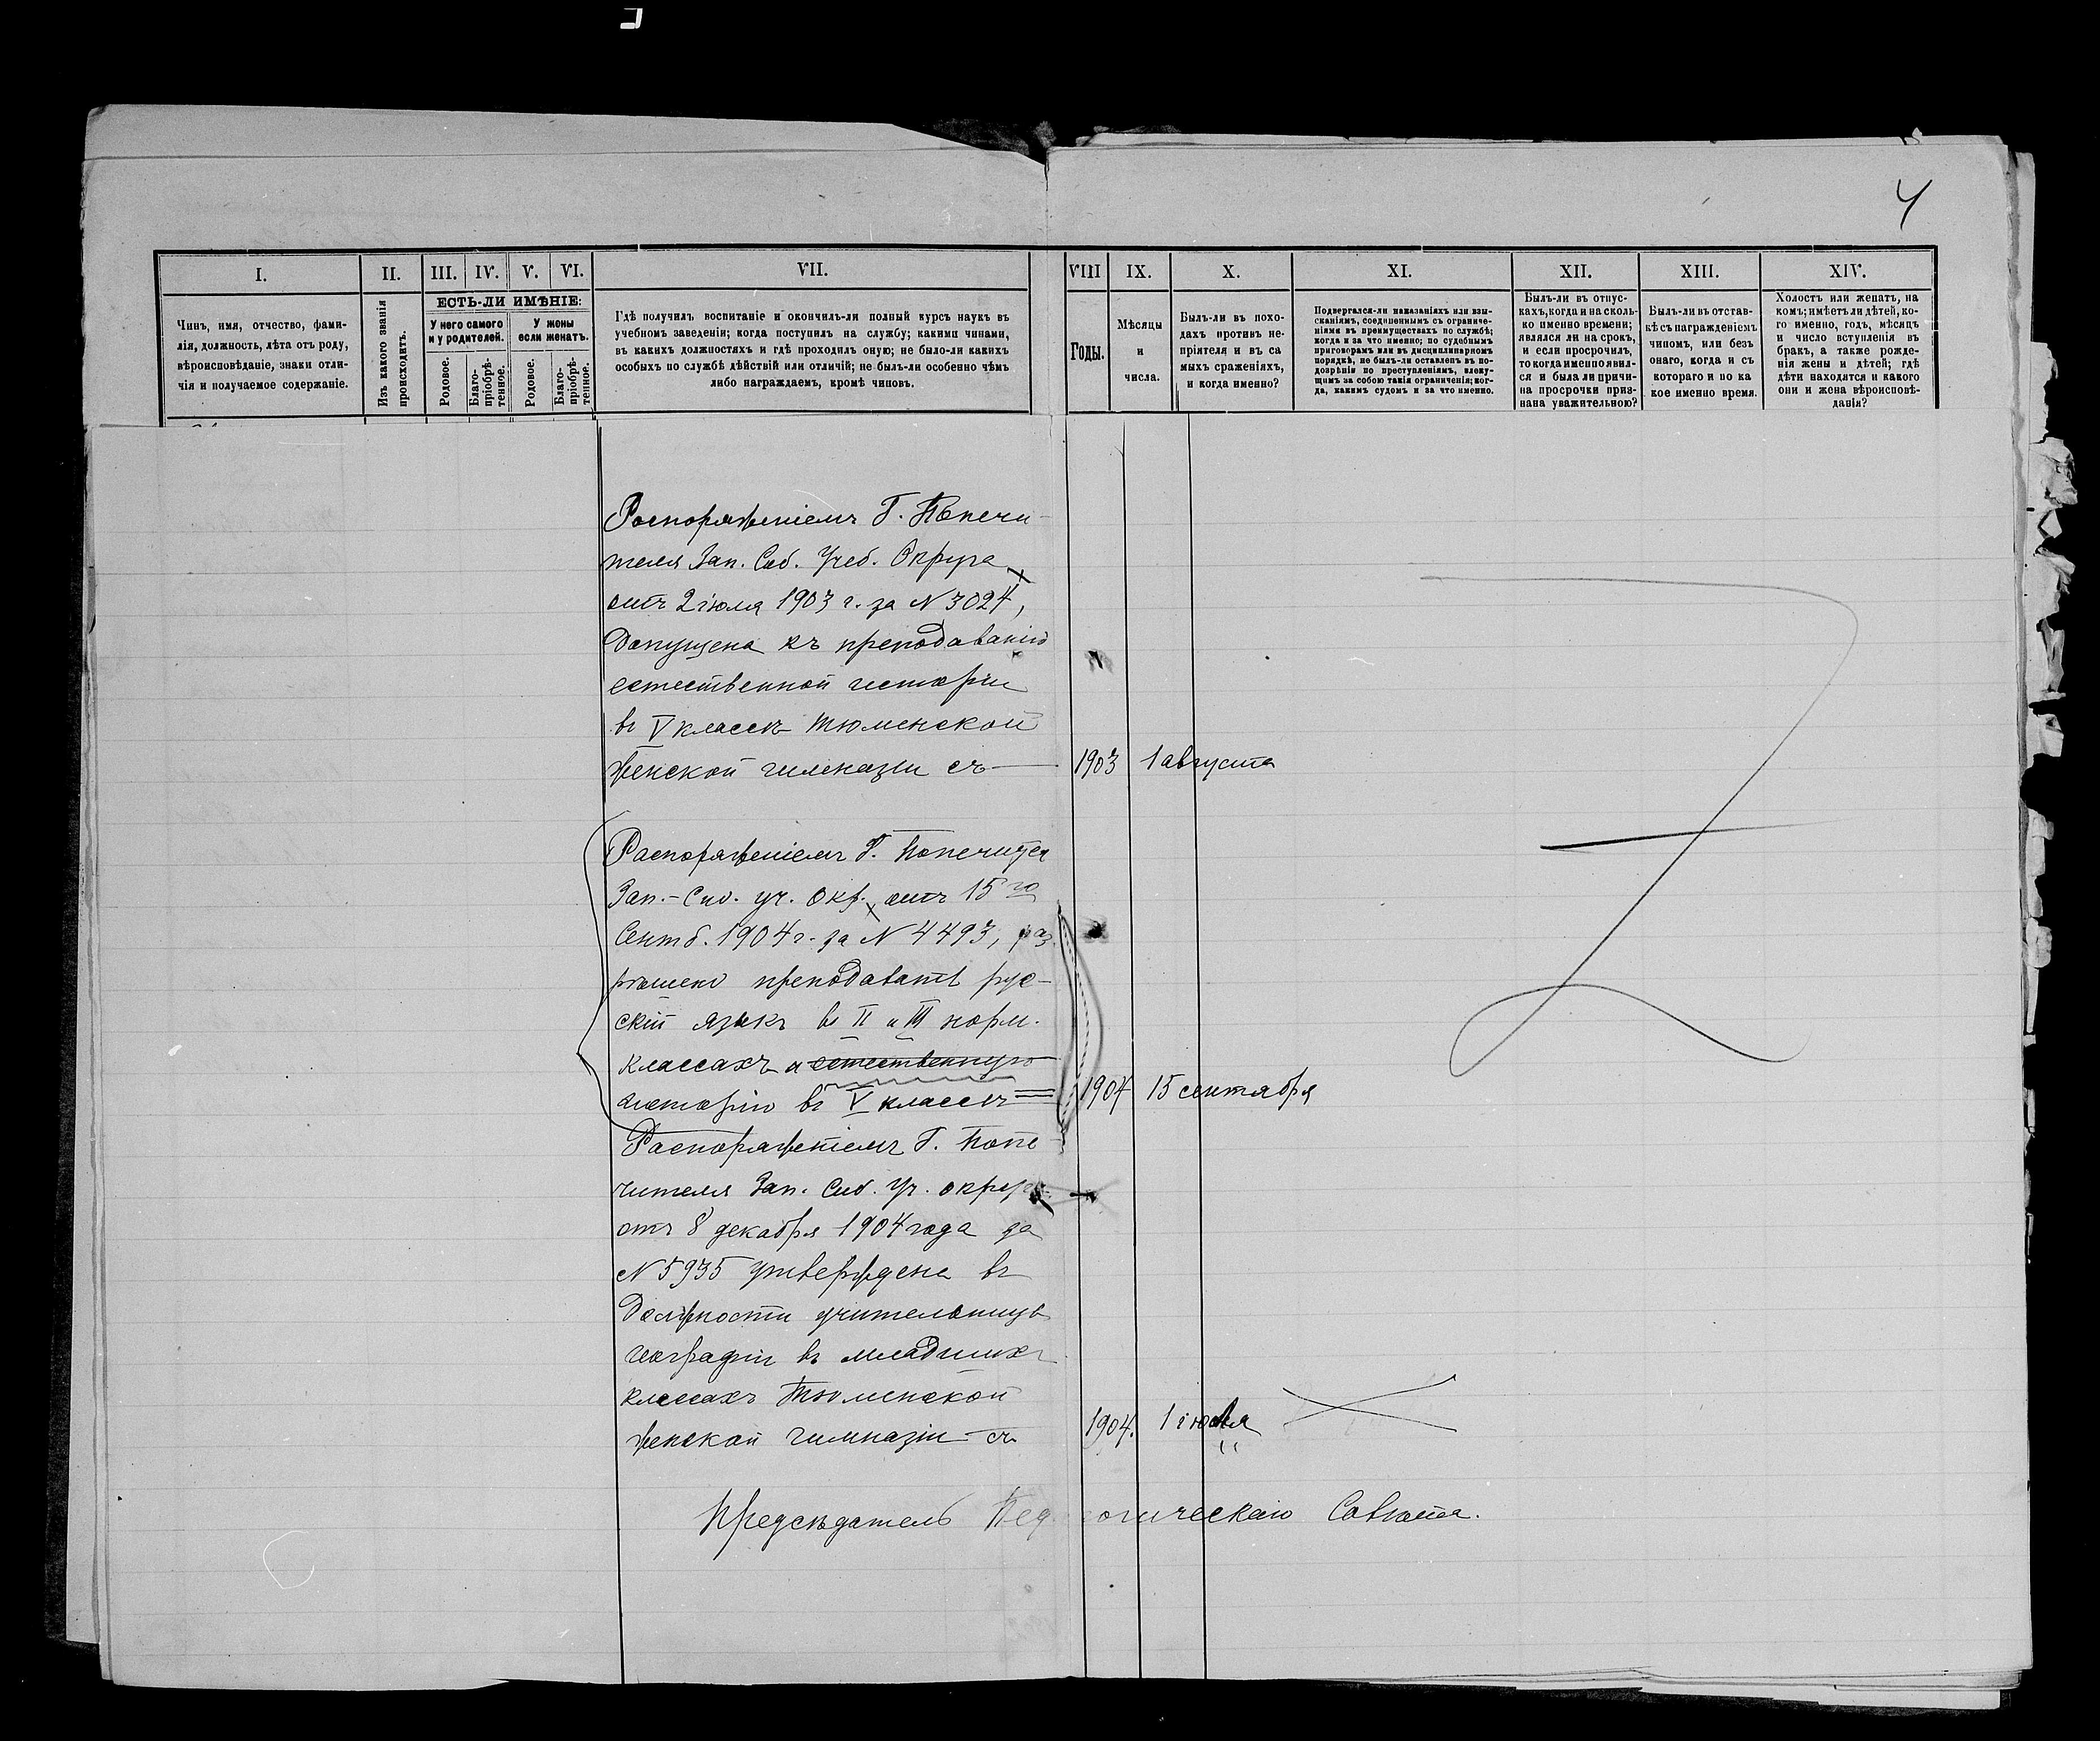 4
I. II. III. IV. V. VI. VII. VIII IX. X. XI. XII. XIII. XIV.
Чинъ, имя, отчество, фами-
лія, должность, лѣта отъ роду,
вѣроисповѣданіе, знаки отли-
чія и получаемое содержаніе.
Изъ какого званія
происходитъ.
ЕСТЬ-ЛИ ИМѢНІЕ:
У него самого
и у родителей.
У жены
если женатъ.
Родовое.
Благо-
пріобрѣ-
тенное.
Родовое.
Благо-
пріобрѣ-
тенное.
Гдѣ получилъ воспитаніе и окончилъ-ли полный курсъ наукъ въ
учебномъ заведеніи; когда поступилъ на службу; какими чинами,
въ какихъ должностяхъ и гдѣ проходилъ оную; не было-ли какихъ
особыхъ по службѣ дѣйствій или отличій; не былъ-ли особенно чѣмъ
либо награждаемъ, кромѣ чиновъ.
Годы.
Мѣсяцы
и
числа.
Былъ-ли въ похо-
дахъ противъ не-
пріятеля и въ са
мыхъ сраженіяхъ,
и когда именно?
Подвергался-ли наказаніяхъ или взы-
сканіямъ, соединеннымъ съ ограниче-
ніями въ преимуществахъ по службѣ;
когда и за что именно; по судебнымъ
приговорамъ или въ дисциплинарномъ
порядкѣ, не былъ-ли оставленъ въ по-
дозрѣніи по преступленіямъ, влеку-
щимъ за собою такія ограниченія; ког-
да, какимъ судомъ и за что именно.
Былъ-ли въ отпус-
кахъ, когда и на сколь-
ко именно времени;
являлся ли на срокъ,
и если просрочилъ,
то когда именно явил-
ся и была ли причи-
на просрочки приз-
нана уважительною?
Былъ-ли въ отстав-
кѣ съ награжденіемъ
чиномъ, или безъ
онаго, когда и съ
котораго и по ка
кое именно время.
Холостъ или женатъ, на
комъ; имѣетъ ли дѣтей, ко-
го именно, годъ, мѣсяцъ
и число вступленія въ
бракъ, а также рожде-
нія жены и дѣтей; гдѣ
дѣти находятся и какого
они и жена вѣроисповѣ-
данія?
Распоряженіемъ Г. Попечи-
теля Зап. Сиб. Учеб. Округа
отъ 2 іюля 1903 г. за N 3024,
допущена къ преподаванію
естественной исторіи
въ V классѣ Тюменской
женской гимназіи съ — 1903 1 августа
Распоряженіемъ Г. Попечителя
Зап.-Сиб. уч. Окр. отъ 15го
Сентб. 1904 г. за N 4493, раз
рѣшено преподавать рус-
скій языкъ въ II и III норм.
классахъ и естественную
исторію въ V классѣ = 1904 15 сентября
Распоряженіемъ Г. Попе
чителя Зап. Сиб. Уч. округа
отъ 8 декабря 1904 года за
N 5935 утверждена въ
должности учительницы
географіи въ младшихъ
классахъ Тюменской
женской гимназіи съ 1904. 1 іюля
Предсѣдатель Педагогическаго Совѣта.